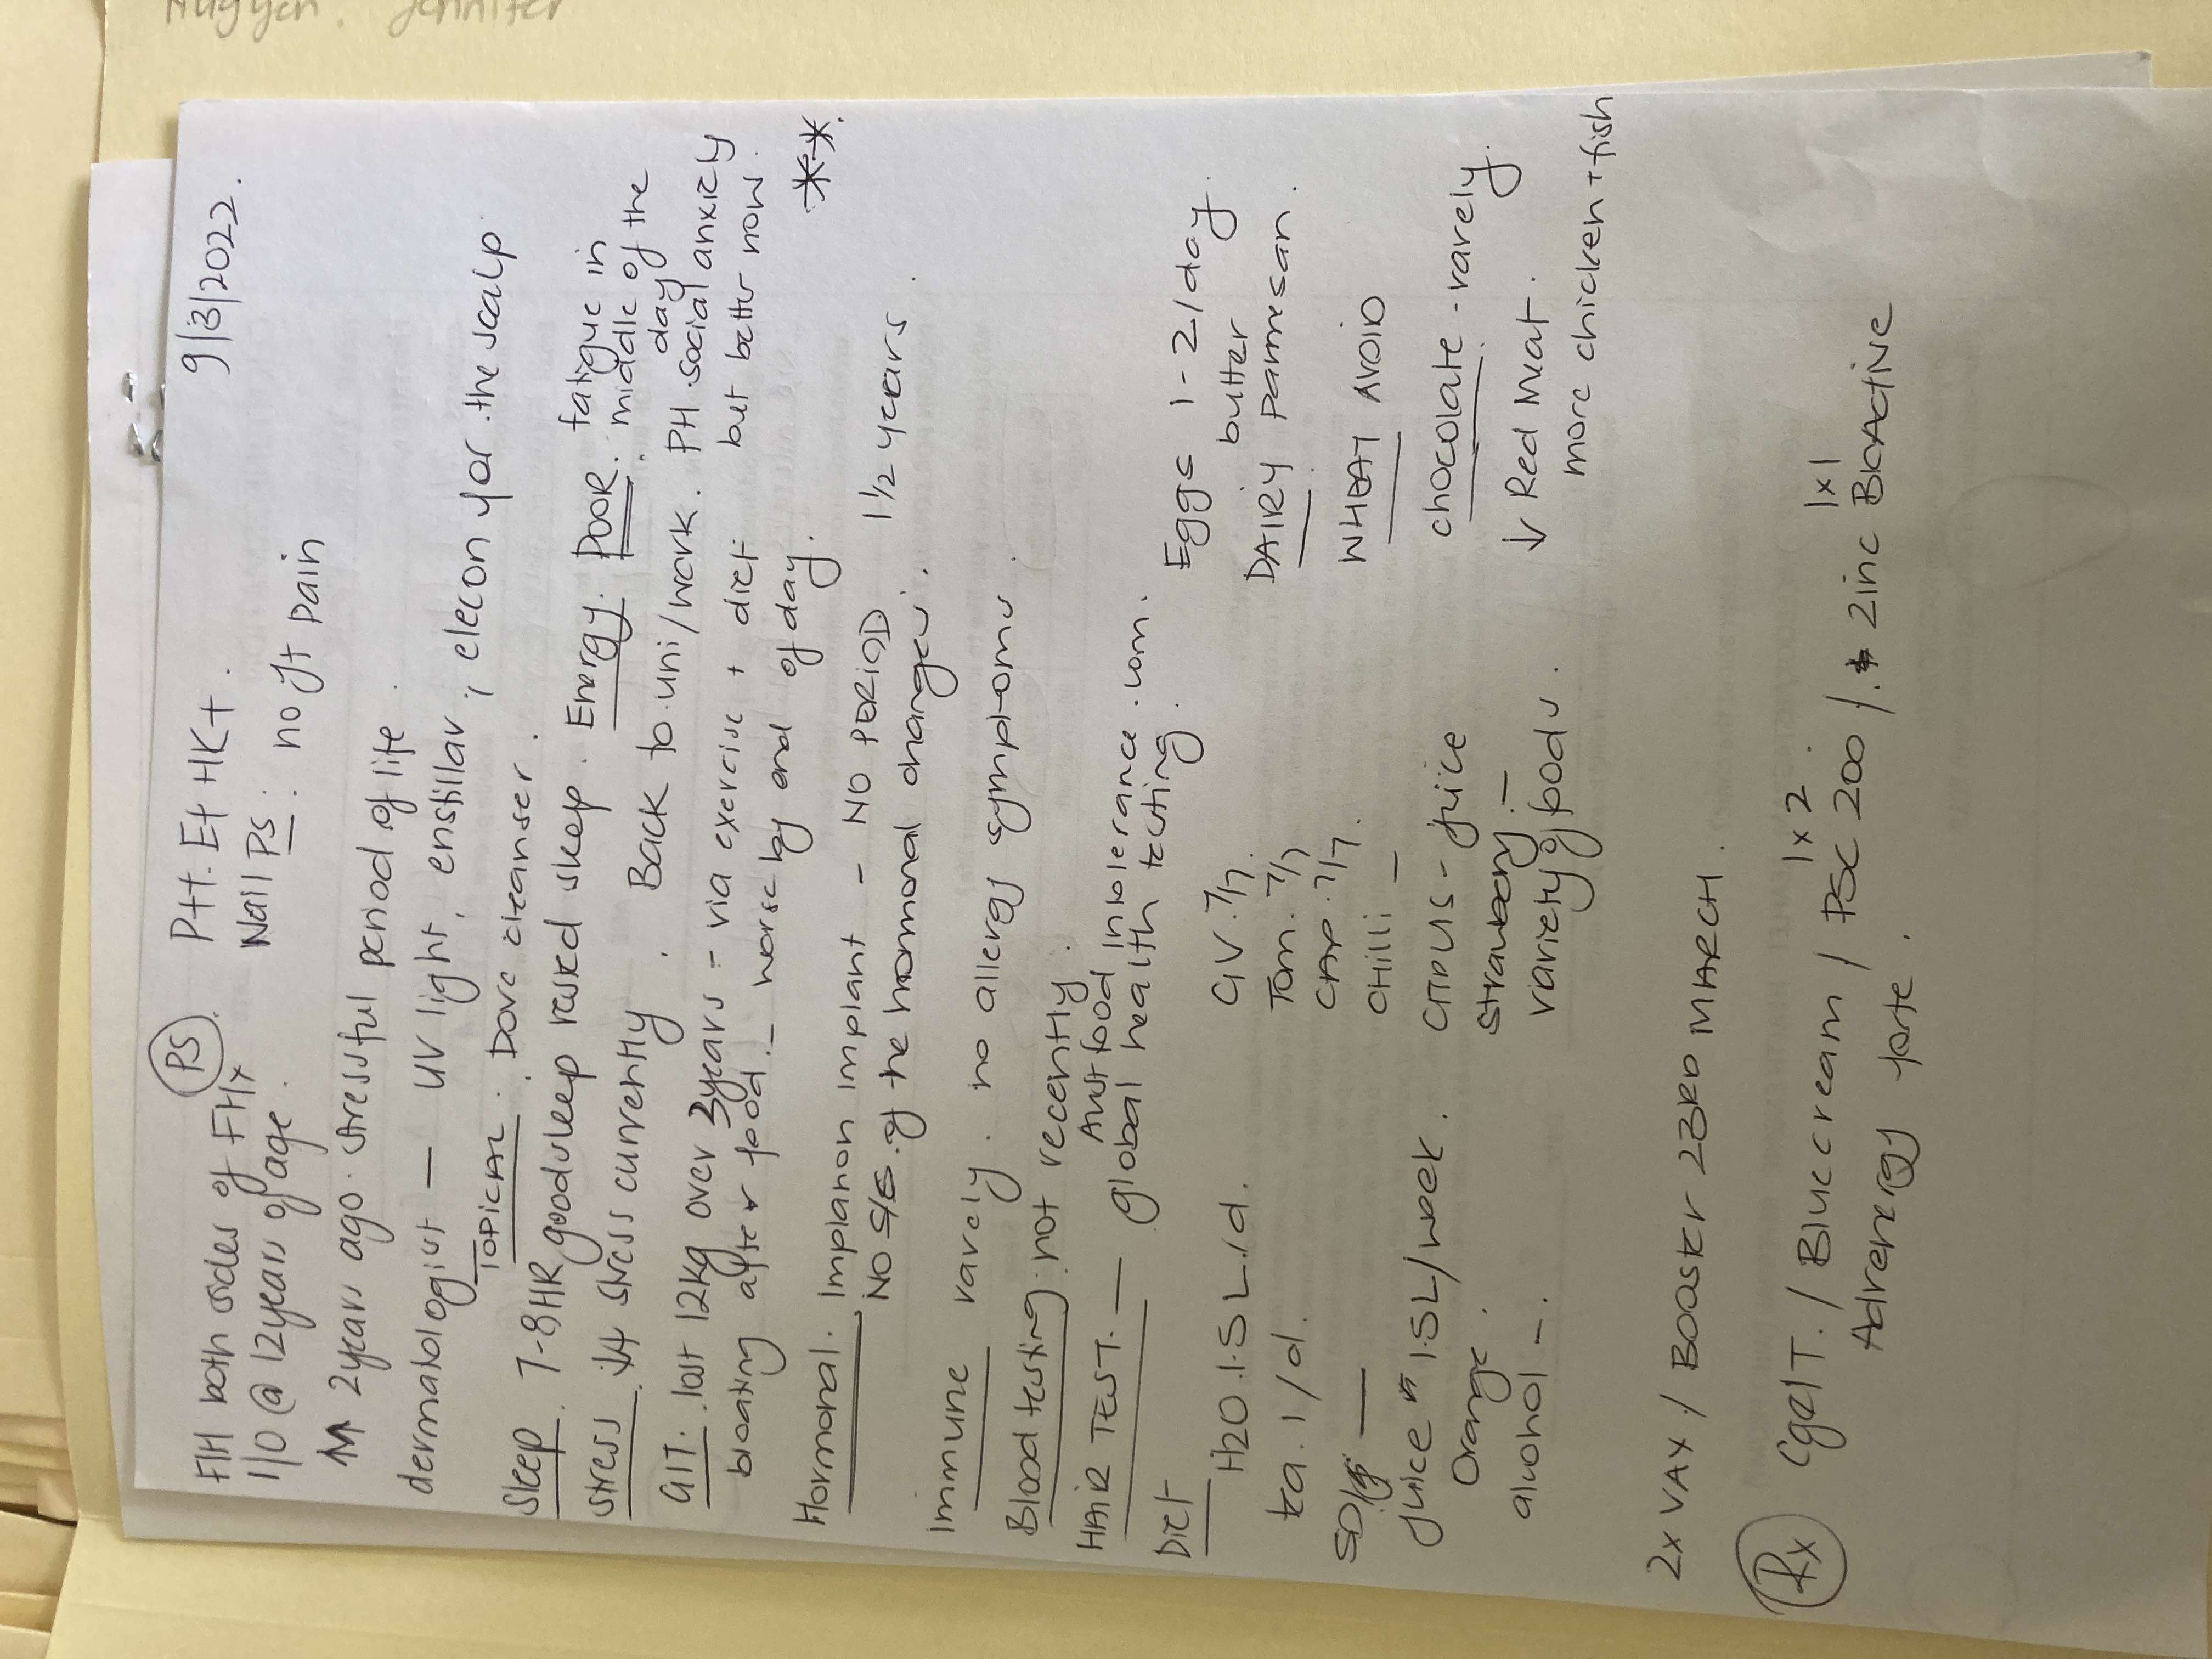 Nuggen. Jennifer
9/3/2022.
FH both sides of FHx (PS). Ptt. Et HK+.
1/0 @ 12years of age. Nail PS: no jt pain
↑↑ 2years ago. stressful period of life.
dermatologist — UV light, enstillar, elecon for the scalp.
TOPICAL. Dove cleanser.
Sleep. 7-8HR good sleep rested sleep. Energy. POOR. fatigue in middle of the day
Stress. stress currently. Back to uni/work. PH social anxiety but better now.
GIT. lost 12kg over 3years - via exercise + diet
bloating after food. - worse by end of day. **.
Hormonal. Implanon implant - NO PERIOD 1½ years.
NO S/E. of the hormonal changes.
Immune rarely. no allergy symptoms.
Blood testing: not recently.
HAIR TEST. — Aust food intolerance. com.
global health testing.
Diet H20. 1.5L/d. GV. 7/7. Eggs 1-2/day.
tea. 1/d. Tom. 7/7 DAIRY butter parmesan.
CAP. 7/7. WHEAT AVOID
Chilli —
juice 1.5L/week. CITRUS - juice chocolate - rarely.
Orange. Strawberry. — ↓ Red Meat.
alcohol -. variety of foods. more chicken + fish
2x VAX / Booster 23RD MARCH.
Rx CgeIT. / Bluecream / PSC 200 1x2 / Zinc BioActive 1x1
Adrenergy forte.